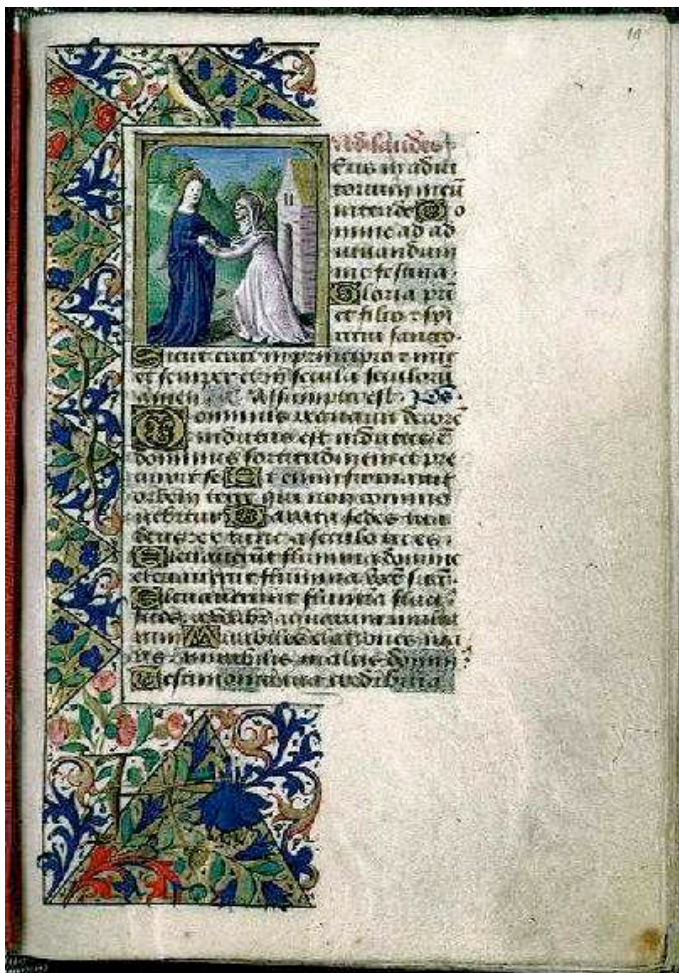 19
Ad laudes
Eus in adiu
torium meū
intende Do
mine ad ad
iuuandum
me festina.
Gloria pri
et filio et spi
ritui sancto.
Sicut erat in principio et nūc
et semper et in secula seculorū
amen Assumpta est. Ps
Dominus regnauit decorē
indutus est indutus ē
dominus fortitudinem et pre
cinxit se Et enim firmauit
orbem terre qui non commo
uebitur Parata sedes tua
deus ex tunc a seculo tu es.
Eleuauerūt flumina domine
eleuauerūt flumina
Eleuauerunt flumina fluc
aquarum multa
rum Mirabiles elationes ma
ris mirabilis in altis
Testimonia tua credibilia